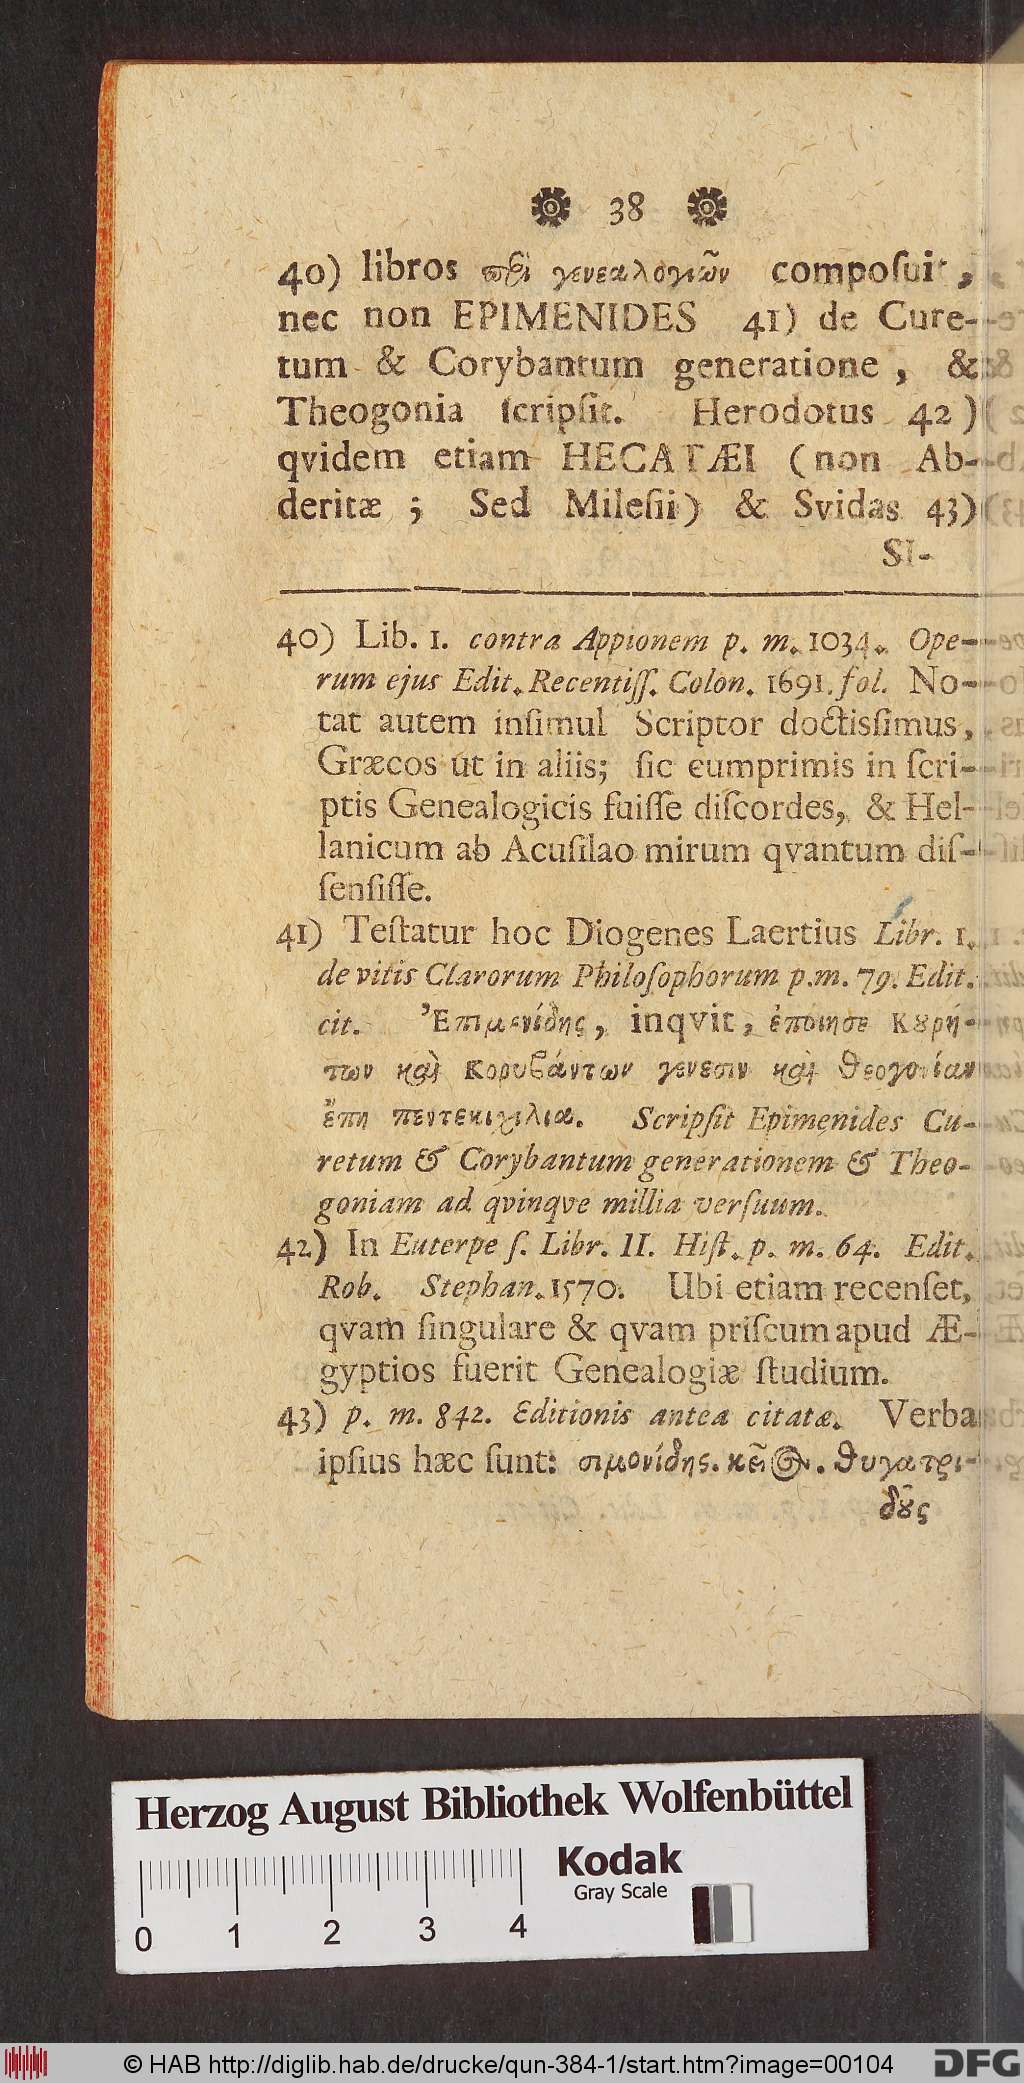 38
40) libros περὶ γενεαλογιῶν compoſuit,
nec non EPIMENIDES 41) de Cure-
tum & Corybantum generatione, &
Theogonia ſcripſit. Herodotus 42)
qvidem etiam HECATÆI (non Ab-
deritæ; Sed Mileſii) & Svidas 43)
SI-
40) Lib. 1. contra Appionem p. m. 1034. Ope-
rum ejus Edit. Recentiſſ. Colon. 1691. fol. No-
tat autem inſimul Scriptor doctisſimus,
Græcos ut in aliis; ſic cumprimis in ſcri-
ptis Genealogicis fuiſſe diſcordes, & Hel-
lanicum ab Acuſilao mirum qvantum diſ-
ſenſiſſe.
41) Teſtatur hoc Diogenes Laertius Libr. 1.
de vitis Clarorum Philoſophorum p.m. 79. Edit.
cit. Ἐπιμενίδης, inqvit, ἐποίησε Κȣρή-
των καὶ Κορυβάντων γενεσιν καὶ θεογονίαν
ἔπη πεντεκιχιλια. Scripſit Epimenides Cu-
retum & Corybantum generationem & Theo-
goniam ad qvinqve millia verſuum.
42) In Euterpe ſ. Libr. II. Hiſt. p. m. 64. Edit.
Rob. Stephan. 1570. Ubi etiam recenſet,
qvam ſingulare & qvam priſcum apud Æ-
gyptios fuerit Genealogiæ ſtudium.
43) p. m. 842. Editionis antea citatæ. Verba
ipſius hæc ſunt: σιμονίδης. κεῖος. θυγατρι-
δȣ͂ς
Herzog August Bibliothek Wolfenbüttel
Kodak
Gray Scale
0 1 2 3 4
© HAB http://diglib.hab.de/drucke/qun-384-1/start.htm?image=00104
DFG